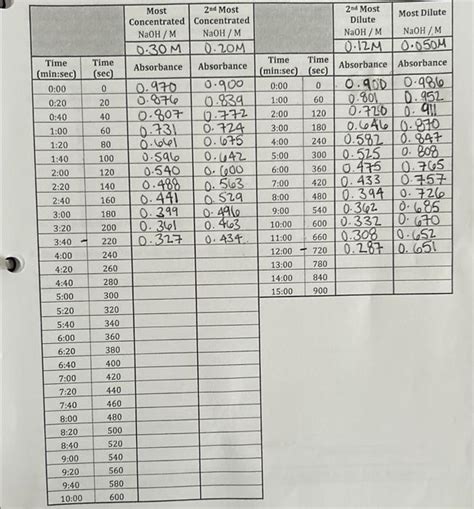 Most Concentrated NaOH / M 2nd Most Concentrated NaOH / M 2nd Most Dilute NaOH / M Most Dilute NaOH / M
0.30M 0.20M 0.12M 0.050M
Time (min:sec) Time (sec) Absorbance Absorbance Time (min:sec) Time (sec) Absorbance Absorbance
0:00 0 0.970 0.900 0:00 0 0.900 0.986
0:20 20 0.876 0.839 1:00 60 0.801 0.952
0:40 40 0.807 0.772 2:00 120 0.720 0.911
1:00 60 0.731 0.724 3:00 180 0.646 0.870
1:20 80 0.661 0.675 4:00 240 0.582 0.847
1:40 100 0.596 0.642 5:00 300 0.525 0.808
2:00 120 0.540 0.600 6:00 360 0.475 0.765
2:20 140 0.488 0.563 7:00 420 0.433 0.757
2:40 160 0.441 0.529 8:00 480 0.394 0.726
3:00 180 0.399 0.496 9:00 540 0.362 0.685
3:20 200 0.361 0.463 10:00 600 0.332 0.670
3:40 - 220 0.327 0.434 11:00 660 0.308 0.652
4:00 240 12:00 - 720 0.287 0.651
4:20 260 13:00 780
4:40 280 14:00 840
5:00 300 15:00 900
5:20 320
5:40 340
6:00 360
6:20 380
6:40 400
7:00 420
7:20 440
7:40 460
8:00 480
8:20 500
8:40 520
9:00 540
9:20 560
9:40 580
10:00 600